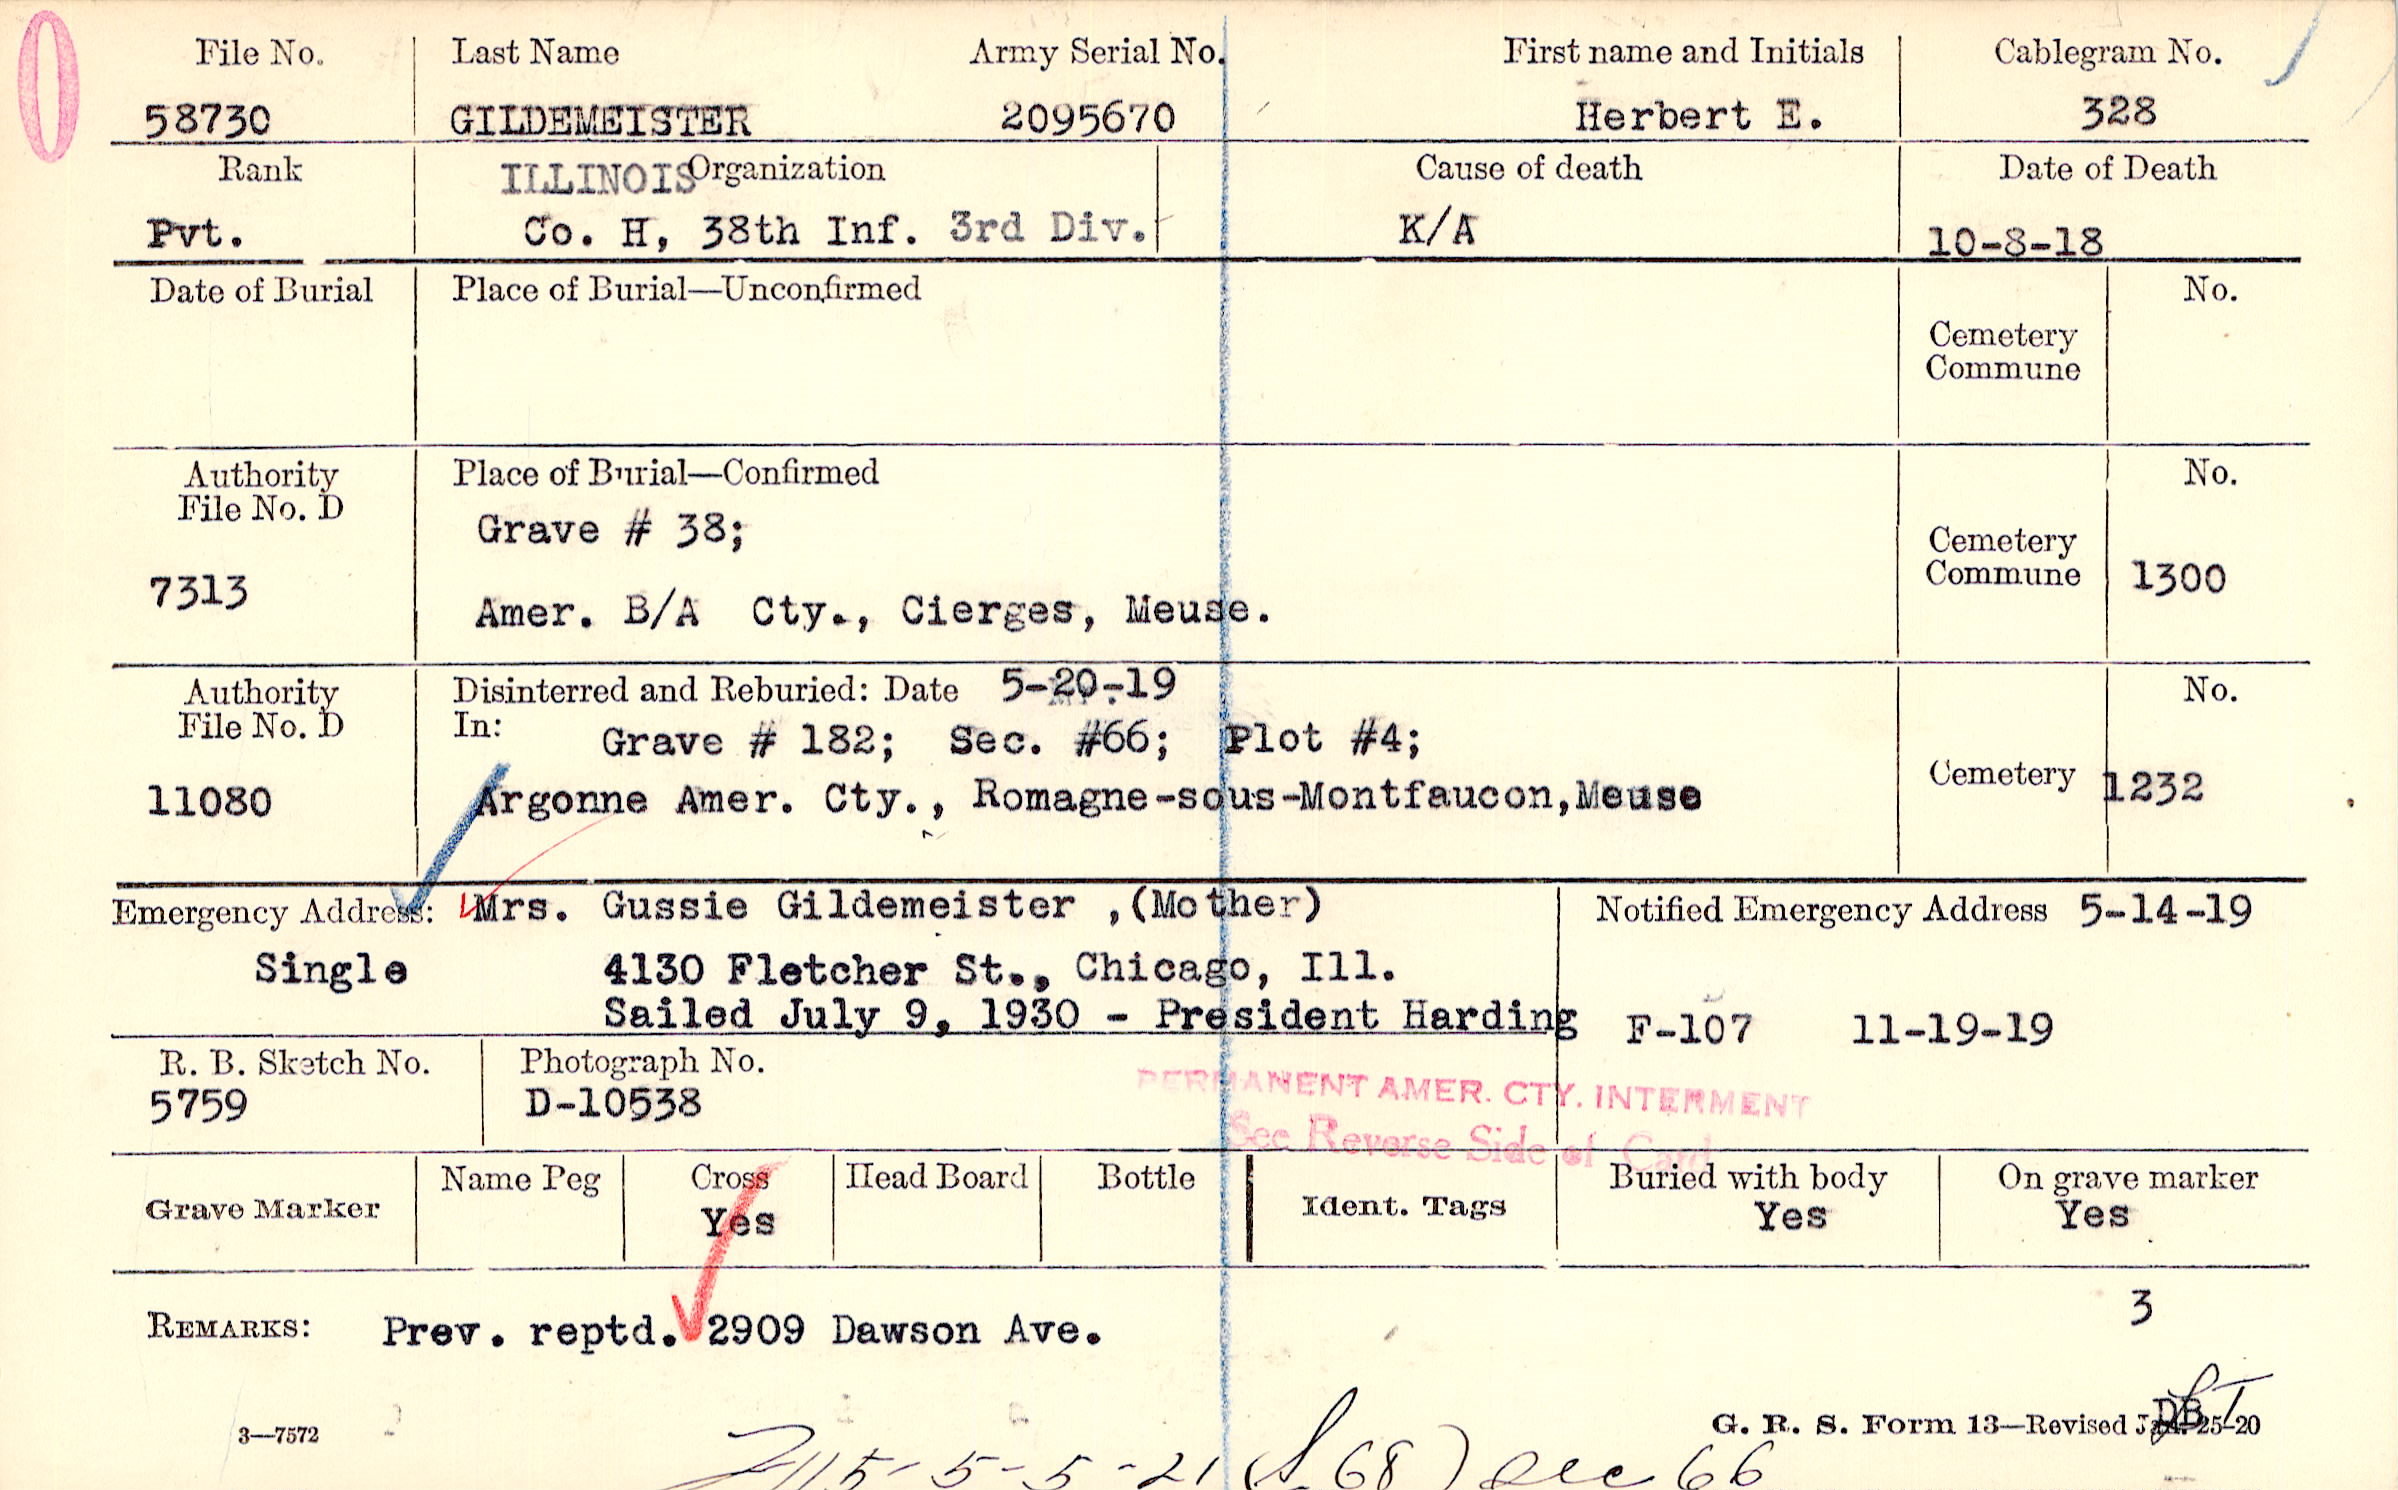 File No. Last Name Army Serial No. First name and Initials Cablegram No.
58730 GILDEMEISTER 2095670 Herbert E. 328
Rank ILLINOIS Organization Cause of death Date of Death
Pvt. Co. H, 38th Inf. 3rd Div. K/A 10-8-18
Date of Burial Place of Burial—Unconfirmed No.
Cemetery
Commune
Authority Place of Burial—Confirmed No.
File No. D
Grave # 38;
Cemetery
7313 Commune 1300
Amer. B/A Cty., Cierges, Meuse.
Authority Disinterred and Reburied: Date 5-20-19 No.
File No. D In: Grave # 182; Sec. #66; Plot #4;
11080 Argonne Amer. Cty., Romagne-sous-Montfaucon, Meuse Cemetery 1232
Emergency Address: Mrs. Gussie Gildemeister ,(Mother) Notified Emergency Address 5-14-19
Single 4130 Fletcher St., Chicago, Ill.
Sailed July 9, 1930 - President Harding F-107 11-19-19
R. B. Sketch No. Photograph No.
5759 D-10538
PERMANENT AMER. CTY. INTERMENT
See Reverse Side of Card
Name Peg Cross Head Board Bottle Buried with body On grave marker
Grave Marker Yes Ident. Tags Yes Yes
3
REMARKS: Prev. reptd. 2909 Dawson Ave.
3—7572 G. R. S. Form 13—Revised Jan. 25-20
DB
5-5-21 (S. 68) Sec 66